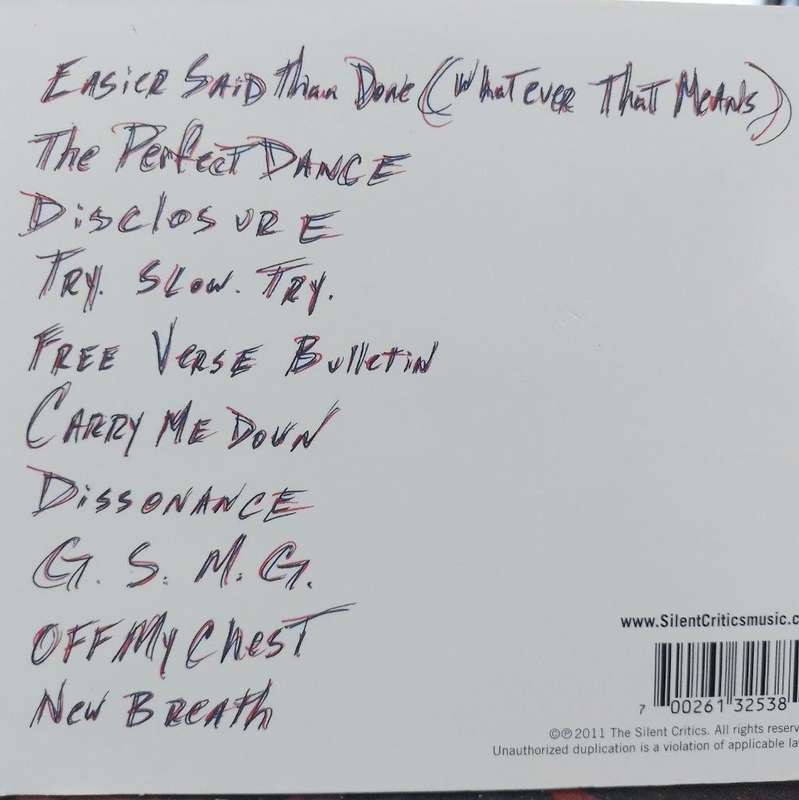 Easier Said Than Done (Whatever That Means)
The Perfect Dance
Disclosure
Try. Slow. Try.
Free Verse Bulletin
Carry Me Down
Dissonance
G. S. M. G.
Off My Chest
New Breath
www.SilentCriticsmusic.c
7 00261 32538
©℗2011 The Silent Critics. All rights reserv
Unauthorized duplication is a violation of applicable la